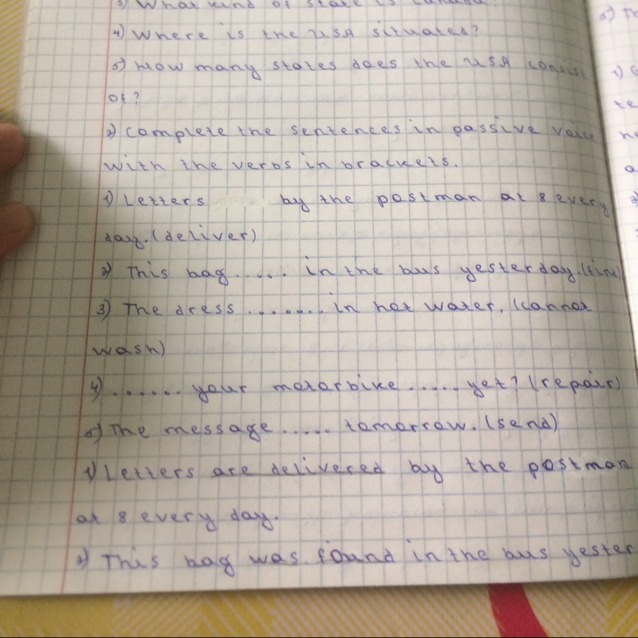 3) What kind of state is Canada?
4) Where is the USA situated?
5) How many states does the USA consist
of?
2) Complete the sentences in passive voice
with the verbs in brackets.
1) Letters by the postman at 8 every
day. (deliver)
2) This bag ..... in the bus yesterday. (find)
3) The dress ....... in hot water. (cannot
wash)
4) ...... your motorbike ..... yet? (repair)
5) The message ..... tomorrow. (send)
1) Letters are delivered by the postman
at 8 every day.
2) This bag was found in the bus yester